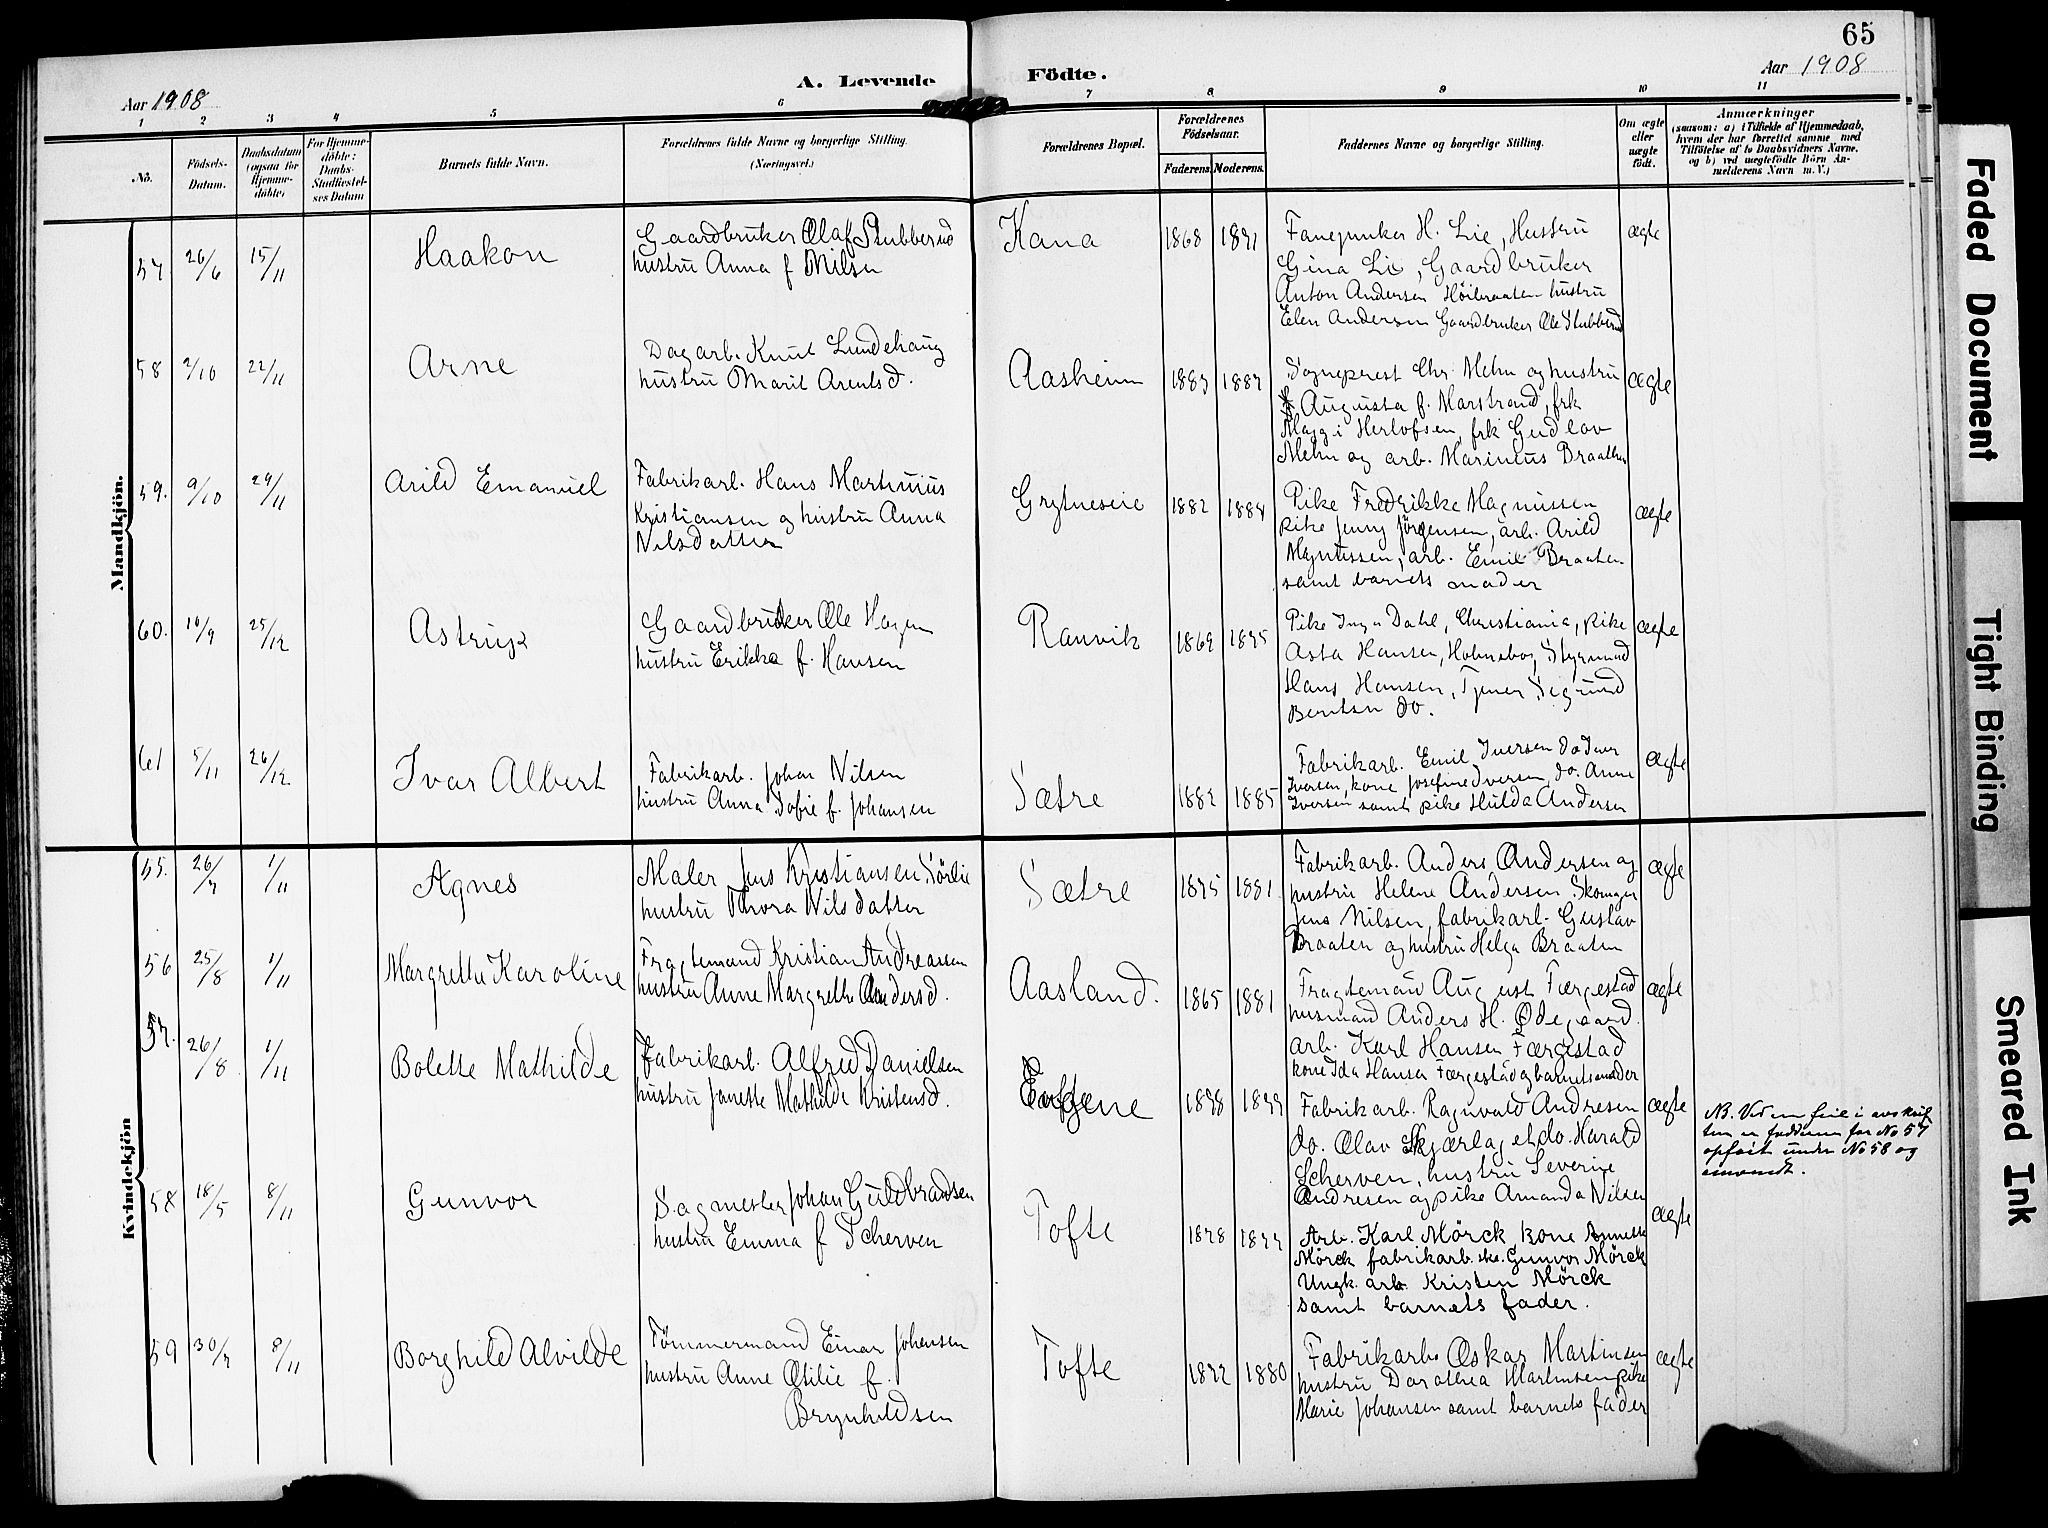 65
A. Levende Födte.
Aar 1908
Aar 1908
1 2 3 4 5 6 7 8 9 10 11
No.
Födsels-Datum.
Daabsdatum (ogsaa for Hjemme-döbte)
For Hjemme-döbte: Daabs-Stadfæstel-ses Datum
Barnets fulde Navn.
Forældrenes fulde Navne og borgerlige Stilling.
(Næringsvei.)
Forældrenes Bopæl.
Forældrenes Födselsaar.
Faderens. Moderens.
Faddernes Navne og borgerlige Stilling.
Om ægte eller uægte födt.
Anmærkninger
(saasom: a) i Tilfælde af Hjemmedaab,
hvem der har forrettet samme, med
Tilföielse af to Daabsvidners Navne,
og b) ved uægtefödte Börn An-
melderens Navn m. V.)
Mandkjön.
57 26/6 15/11 Haakon
Gaardbruker Olaf Stubberud
hustru Anna f Nilsen
Kana 1868 1871
H. Lie, Hustru
Gina Lie, Gaardbruker
Anton Andersen Höibraaten hustru
Elen Andersen Gaardbruker Ole Stubberud
ægte
58 2/10 22/11 Arne
Dagarb. Knut Lundehaug
hustru Marit Arentsd.
Aasheim 1887 1887
Sogneprest Chr. Mehn og hustru
Augusta f. Marstrand, frk
Maggi Herlofsen, frk Gudlov
Mehn og arb. Marinius Braathen
ægte
59. 9/10 29/11 Arild Emanuel
Fabrikarb. Hans Martinius
Kristiansen og hustru Anna
Nilsdatter
Grytneseie 1882 1884
Pike Fredrikke Magnussen
pike Jenny Jörgensen, arb. Arild
Magnussen, arb. Emil Braaten
samt barnets moder
ægte
60. 10/9 25/12 Astrup
Gaardbruker Ole Hagen
hustru Erikka f. Hansen
Ranvik 1869 1875
Pike Inga Dahl, Christiania, pike
Asta Hansen, Holmsbo, Styrmand
Hans Hansen, Tjener Sigrund
Bentsen do.
ægte
61 5/11 26/12 Ivar Albert
Fabrikarb. Johan Nilsen
hustru Anna Sofie f. Johansen
Sætre 1882 1885
Fabrikarb. Emil Iversen do Iver
Iversen, kone Josefine Iversen, do. Anne
Iversen samt pike Hulda Andersen
ægte
Kvindekjön
55. 26/7 1/11 Agnes
Maler Jens Kristiansen Sörlie
hustru Thora Nilsdatter
Sætre 1875 1881
Fabrikarb. Anders Andersen og
hustru Helene Andersen
Jens Nilsen, fabrikarb. Gustav
Braaten og hustru Helga Braaten
ægte
56 25/8 1/11 Margrethe Karoline
Fragtemand Kristian Andreassen
hustru Anne Margrethe Andersd.
Aasland. 1865 1881
Fragtemand August Færgestad
husmand Anders H. Ødegaard.
arb. Karl Hansen Færgestad
kone Ida Hansen Færgestad og barnets moder
ægte
57. 26/8 1/11 Bolette Mathilde
Fabrikarb. Alfred Danielsen
hustru Janette Mathilde Kristensd.
1878 1877
Fabrikarb. Ragnvald Andresen
do. Olav Skjærlaget do. Harald
Scherven, hustru Severine
Andresen og pike Amanda Nilsen
ægte
NB. Ved en feil i avskrif
ten er fadderne for No 57
opført under No 58 og
omvendt.
58 18/5 8/11 Gunvor
Sagmester Johan Guldbrandsen
hustru Emma f Scherven
Tofte 1878 1877
Arb. Karl Mörck, kone Annette
Mörck fabrikarb. ske. Gunvor Mörck
Ungk. arb. Kristen Mörck
samt barnets fader.
ægte
59 30/7 8/11 Borghild Alvilde
Tömmermand Einar Johansen
hustru Anne Otilie f.
Brynhildsen
Tofte 1872 1880
Fabrikarb. Oskar Martinsen
hustru Dorothea Martinsen pike
Marie Johansen samt barnets fader
ægte
Faded Document
Tight Binding
Smeared Ink